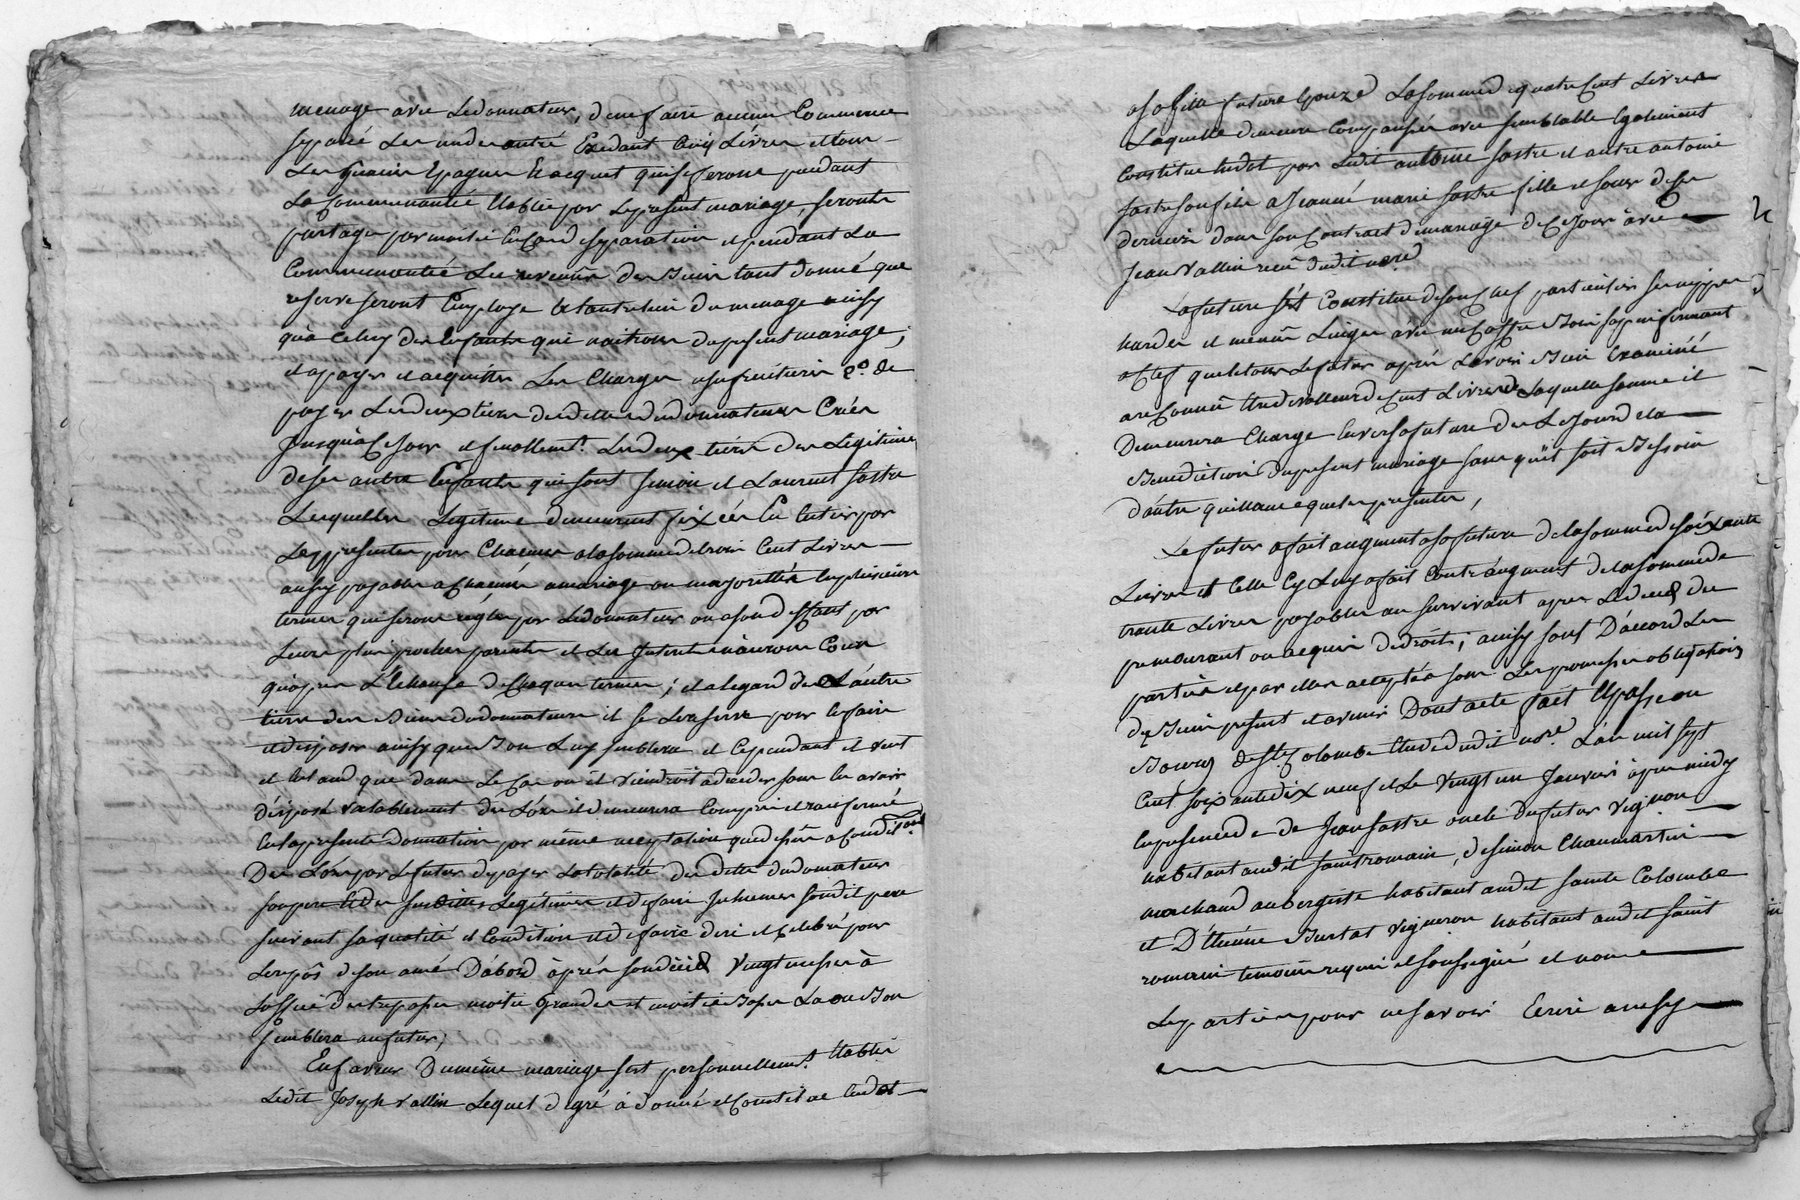 menage avec Ledonnateur, denefaire aucun Commerce
separé Les unde autre Exedant Cinq Livres et tous
Les Guains Epagnes et acquet quise feront pendant
La Communauté Etablie par Lepresent mariage, seronts
partagé parmoitié En Cas deseparation, et pendant La
Communauté Les revenus des Biens tant donné que
reservé seront Employé a Lentretien du menage ainsy
qu'a Celuy des Enfants qui naitrons du present mariage;
et apayer et acquitter Les Charges usufruitieres 2º. de
payer Lesdeux tiers des dettes du donnateur Crées
Jusqu'aCejour et finallemt. Lesdeux tiers des Legitimes
deses autres Enfants qui sont simon et Laurent fastre
Lesquelles Legitimes demeurent fixées En Entier par
Les presentes pour Chacunes alasomme detrois Cent Livres
aussy payables a Chacuns a mariage ou majorittés En plusieurs
termes qui seront reglés par Ledonnateur ou asond effaut par
Leurs plus proches parents et Les Interets n'aurons Cour
qu'apres L'Echeance de Chaque termes; et alegard de L'autre
tiers des Biens dudonnateur il se Lereserve pour En faire
et disposer ainsy que Bon Luy semblera et Cependant il veut
et Entend que dans Le Cas ou il viendroit a deceder sans En avoir
disposé valablement des Lors il demeurera Compris et renfermé
En la presente Donnation par même acceptation que dessus a Condition
Des Lors par Lefutur de payer La totalité des dettes dudonnateur
son pere Et des susdittes Legitimes et defaire Inhumer son dit pere
suivant sa qualité et Condition et defaire dire et Celebré pour
Lerepos deson ame D'abord après son décéd vingt messes à
Loffice des trepassés moitié grandes et moitié Basses La ou Bon
semblera aufutur;
En faveur Dumême mariage sest personnellemt. Etablie
Ledit Joseph vallin Lequel de gré à donné et Constitué Endot
asafille future Epouze Lasomme de quatre Cent Livres
Laquelle demeure Compensée avec semblable Egalement
Constituée Endot par Ledit antoine fastre et autre antoine
fastre son fils a Jeanne marie fastre fille et soeur de Ces
derniers dans son Contract de mariage de Cejour avec
Jean vallin reçu dudit nore
Lafuture sest Constituée de son Chef particulier ses nippes
hardes et menus Linges avec un Coffre Bois sapin fermant
a Clef quele tout Lefutur après Lavoir Bien Examiné
a reConnu Etre de valleur de Cent Livres de Laquelle somme il
Demeurera Charge Envers sa future des Lejour de la
Benediction dupresent mariage sans qu'il soit Bessoin
d'autre quittance que Les presentes,
Lefutur afait augment a safuture de lasomme desoixante
Livres et Celle Cy Luy afait Contraugment de lasomme de
trente Livres payables au survivant apres Ledeced du
premourant ou acquis de droit; ainsy sont D'accord Les
parties et par elles accepté sous Les promesses obligations
de Biens presents et avenir Dont acte fait Et passé au
Bourg de Ste Colombe Etude dudit nore. L'an mil sept
Cent soixante dix neuf et Le vingt un Janvier après midy
En presence de Jean fastre oncle dufutur vigneron
habitant audit saint romain, desimon Chaumartin
marchand aubergiste habitant audit sainte Colombe
et D'étienne Burtat vigneron habitant audit saint
romain temoins requis et soussignés et non
Les parties pour ne savoir Ecrire ainsy